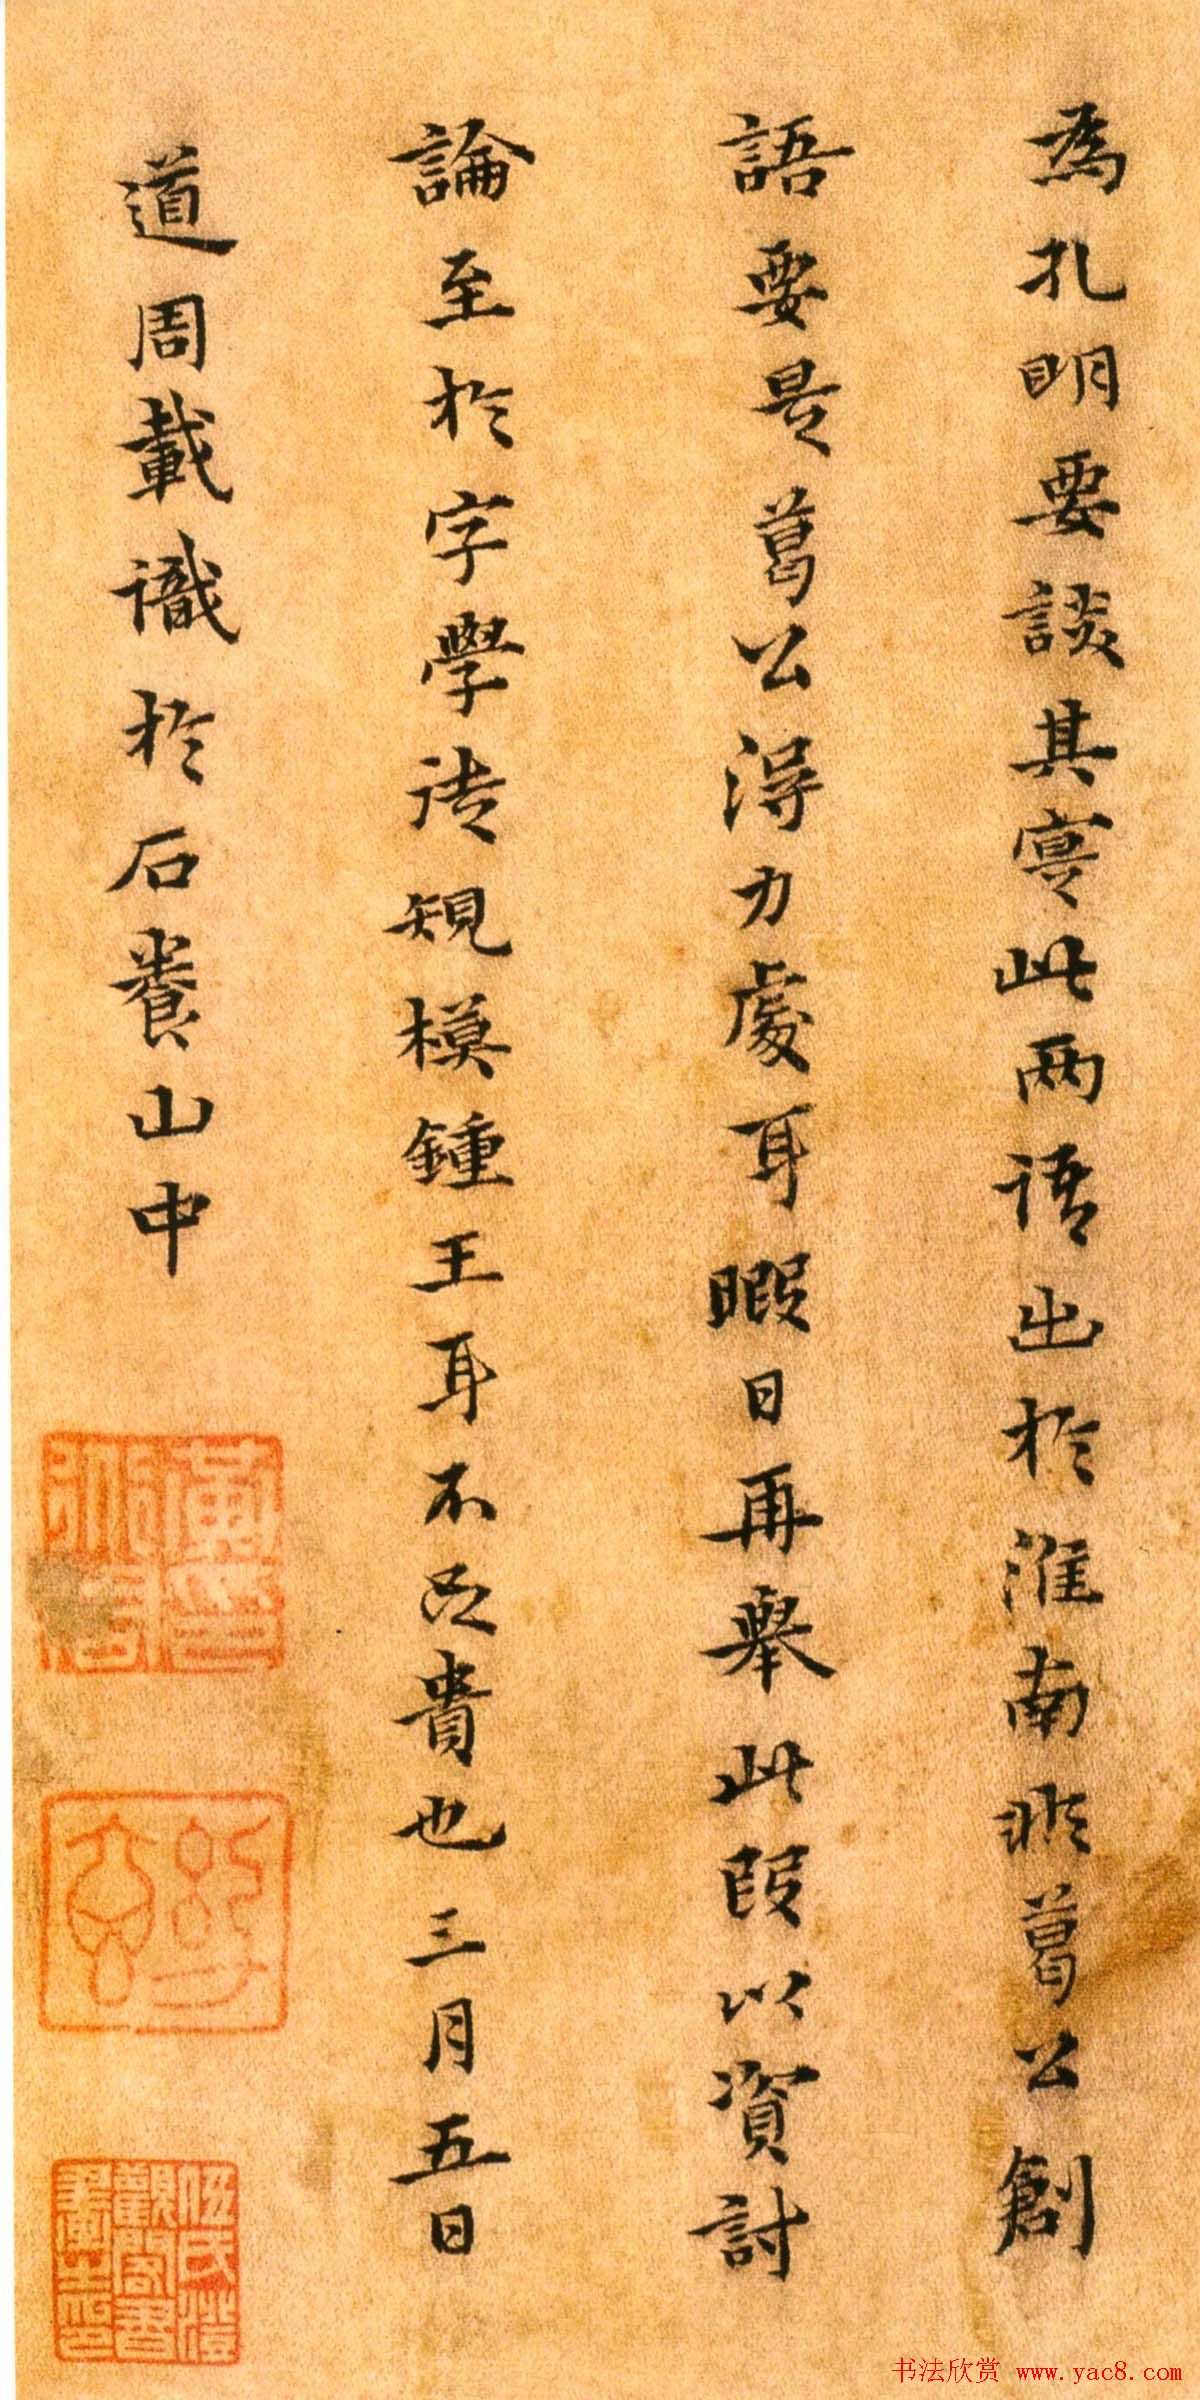 為孔明要談其實此兩語出於淮南非葛公創
語要是葛公得力處耳暇日再舉此段以資討
論至於字學法規模鍾王耳不足貴也三月五日
道周載識於石養山中
伍氏澄觀閣書畫之印
书法欣赏 www.yac8.com